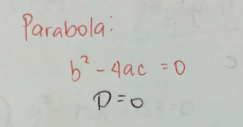 Parabola:
b² - 4ac = 0
D = 0